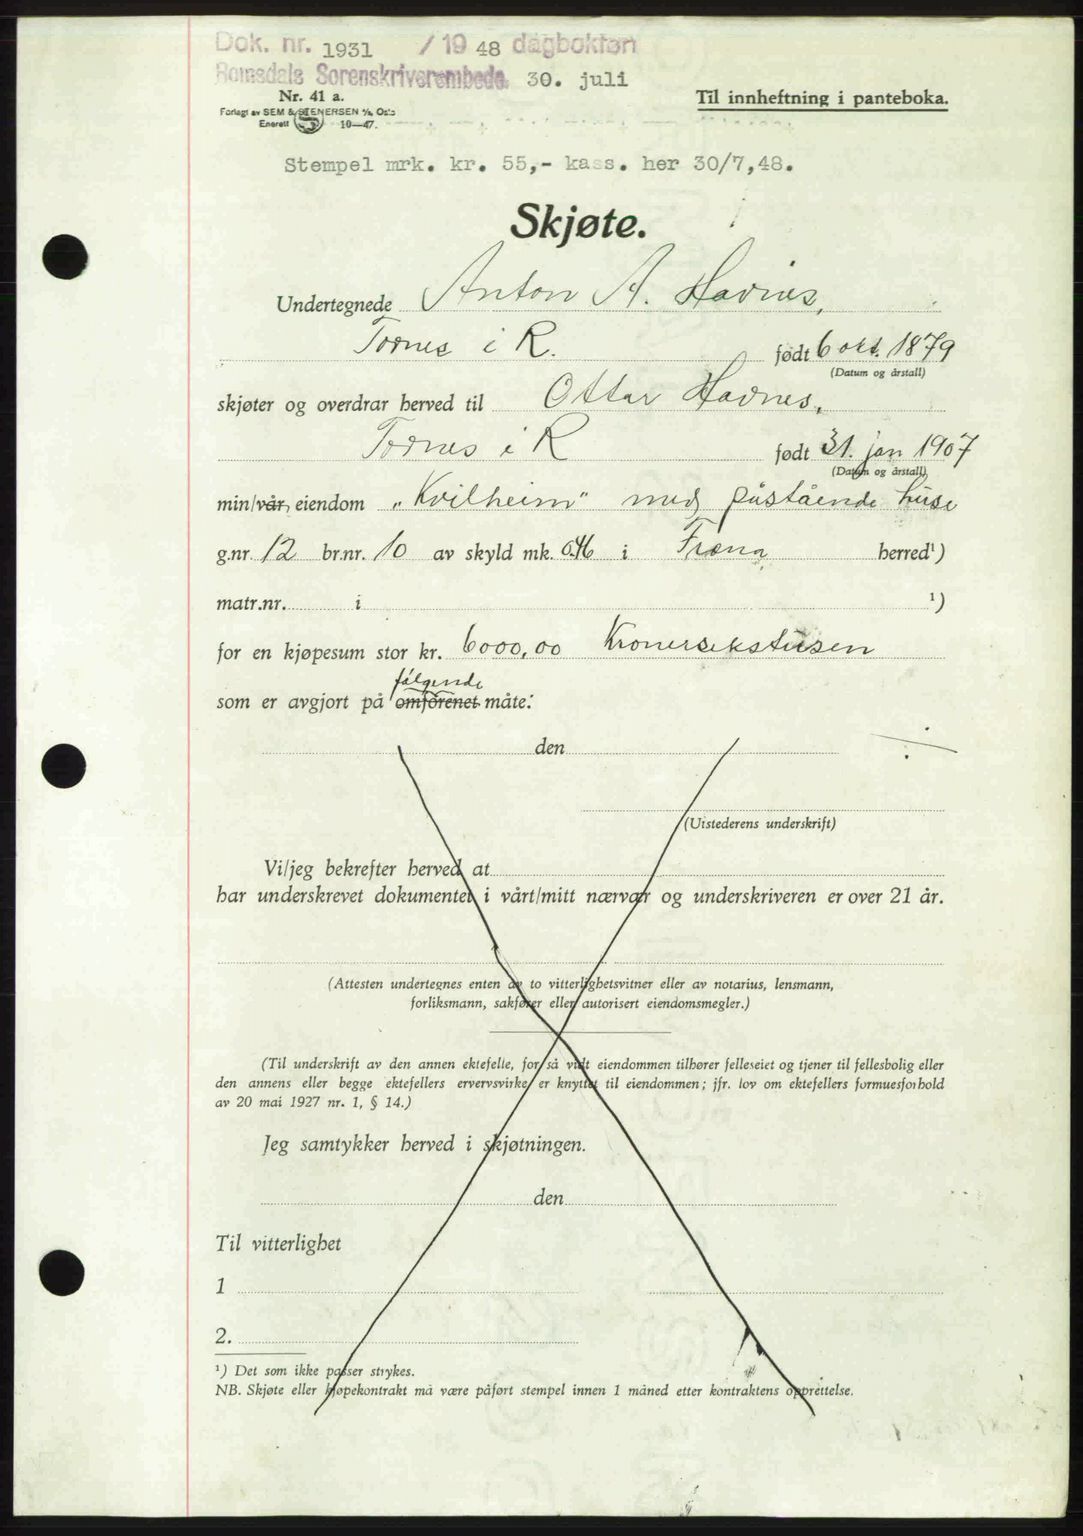 Dok. nr. 1931 / 19 48 dagbokføn
Romsdals Sorenskriverembede. 30. juli
Nr. 41 a.
Forlagt av SEM & STENERSEN A/S, Oslo
Enerett 10—47.
Til innheftning i panteboka.
Stempel mrk. kr. 55,- kass. her 30/7,48.
Skjøte.
Undertegnede Anton A. Havnes,
Tornes i R. født 6 okt. 1879
(Datum og årstall)
skjøter og overdrar herved til Ottar Havnes,
Tornes i R født 31. jan 1907
(Datum og årstall)
min/vår, eiendom "Kvilheim" med påstående huse
g.nr. 12 br.nr. 10 av skyld mk. 0.46 i Fræna herred¹)
matr.nr. i ¹)
for en kjøpesum stor kr. 6000,00 Kronersekstusen
følgende
som er avgjort på omforenet måte:
den
(Utstederens underskrift)
Vi/jeg bekrefter herved at
har underskrevet dokumentet i vårt/mitt nærvær og underskriveren er over 21 år.
(Attesten undertegnes enten av to vitterlighetsvitner eller av notarius, lensmann,
forliksmann, sakfører eller autorisert eiendomsmegler.)
(Til underskrift av den annen ektefelle, for så vidt eiendommen tilhører felleseiet og tjener til fellesbolig eller
den annens eller begge ektefellers ervervsvirke er knyttet til eiendommen; jfr. lov om ektefellers formuesforhold
av 20 mai 1927 nr. 1, § 14.)
Jeg samtykker herved i skjøtningen.
den
Til vitterlighet
1
2.
¹) Det som ikke passer strykes.
NB. Skjøte eller kjøpekontrakt må være påført stempel innen 1 måned etter kontraktens opprettelse.